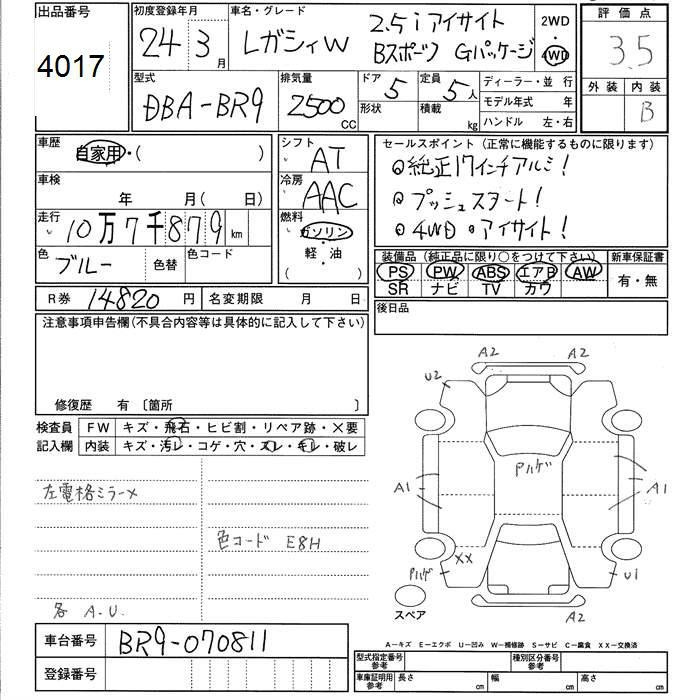 出品番号
4017
初度登録年月
24年3月
車名・グレード
レガシィW
2.5i アイサイト
Bスポーツ Gパッケージ
2WD
4WD
評価点
3.5
外装
内装
B
型式
DBA-BR9
排気量
2500
CC
ドア
5
形状
定員
5人
積載
kg
ディーラー・並行
モデル年式 年
ハンドル 左・右
車歴
自家用・( )
車検
年 月( 日)
走行
10万7千879km
色
ブルー
色替
色コード
シフト
AT
冷房
AAC
燃料
ガソリン
・軽・油
( )
セールスポイント(正常に機能するものに限ります)
◎純正17インチアルミ!
◎プッシュスタート!
◎4WD ◎アイサイト!
装備品(純正品に限り○をつけて下さい)
新車保証書
PS PW ABS エアB AW
SR ナビ TV カワ
有・無
後日品
R券 14820円
名変期限 月 日
注意事項申告欄(不具合内容等は具体的に記入して下さい)
修復歴 有 〔箇所 〕
検査員
記入欄
FW キズ・飛石・ヒビ割・リペア跡・×要
内装 キズ・汚レ・コゲ・穴・スレ・キレ・破レ
左電格ミラー×
色コード E8H
各 A.U.
A2 A2
U2
Pハゲ
A1 A1
XX
Pハゲ
U1
A2
スペア
A−キズ E−エクボ U−凹み W−補修跡 S−サビ C−腐食 XX−交換済
車台番号 BR9-070811
登録番号
型式指定番号
参考
種別区分番号
参考
車庫証明用
参考
長さ cm 幅 cm 高さ cm